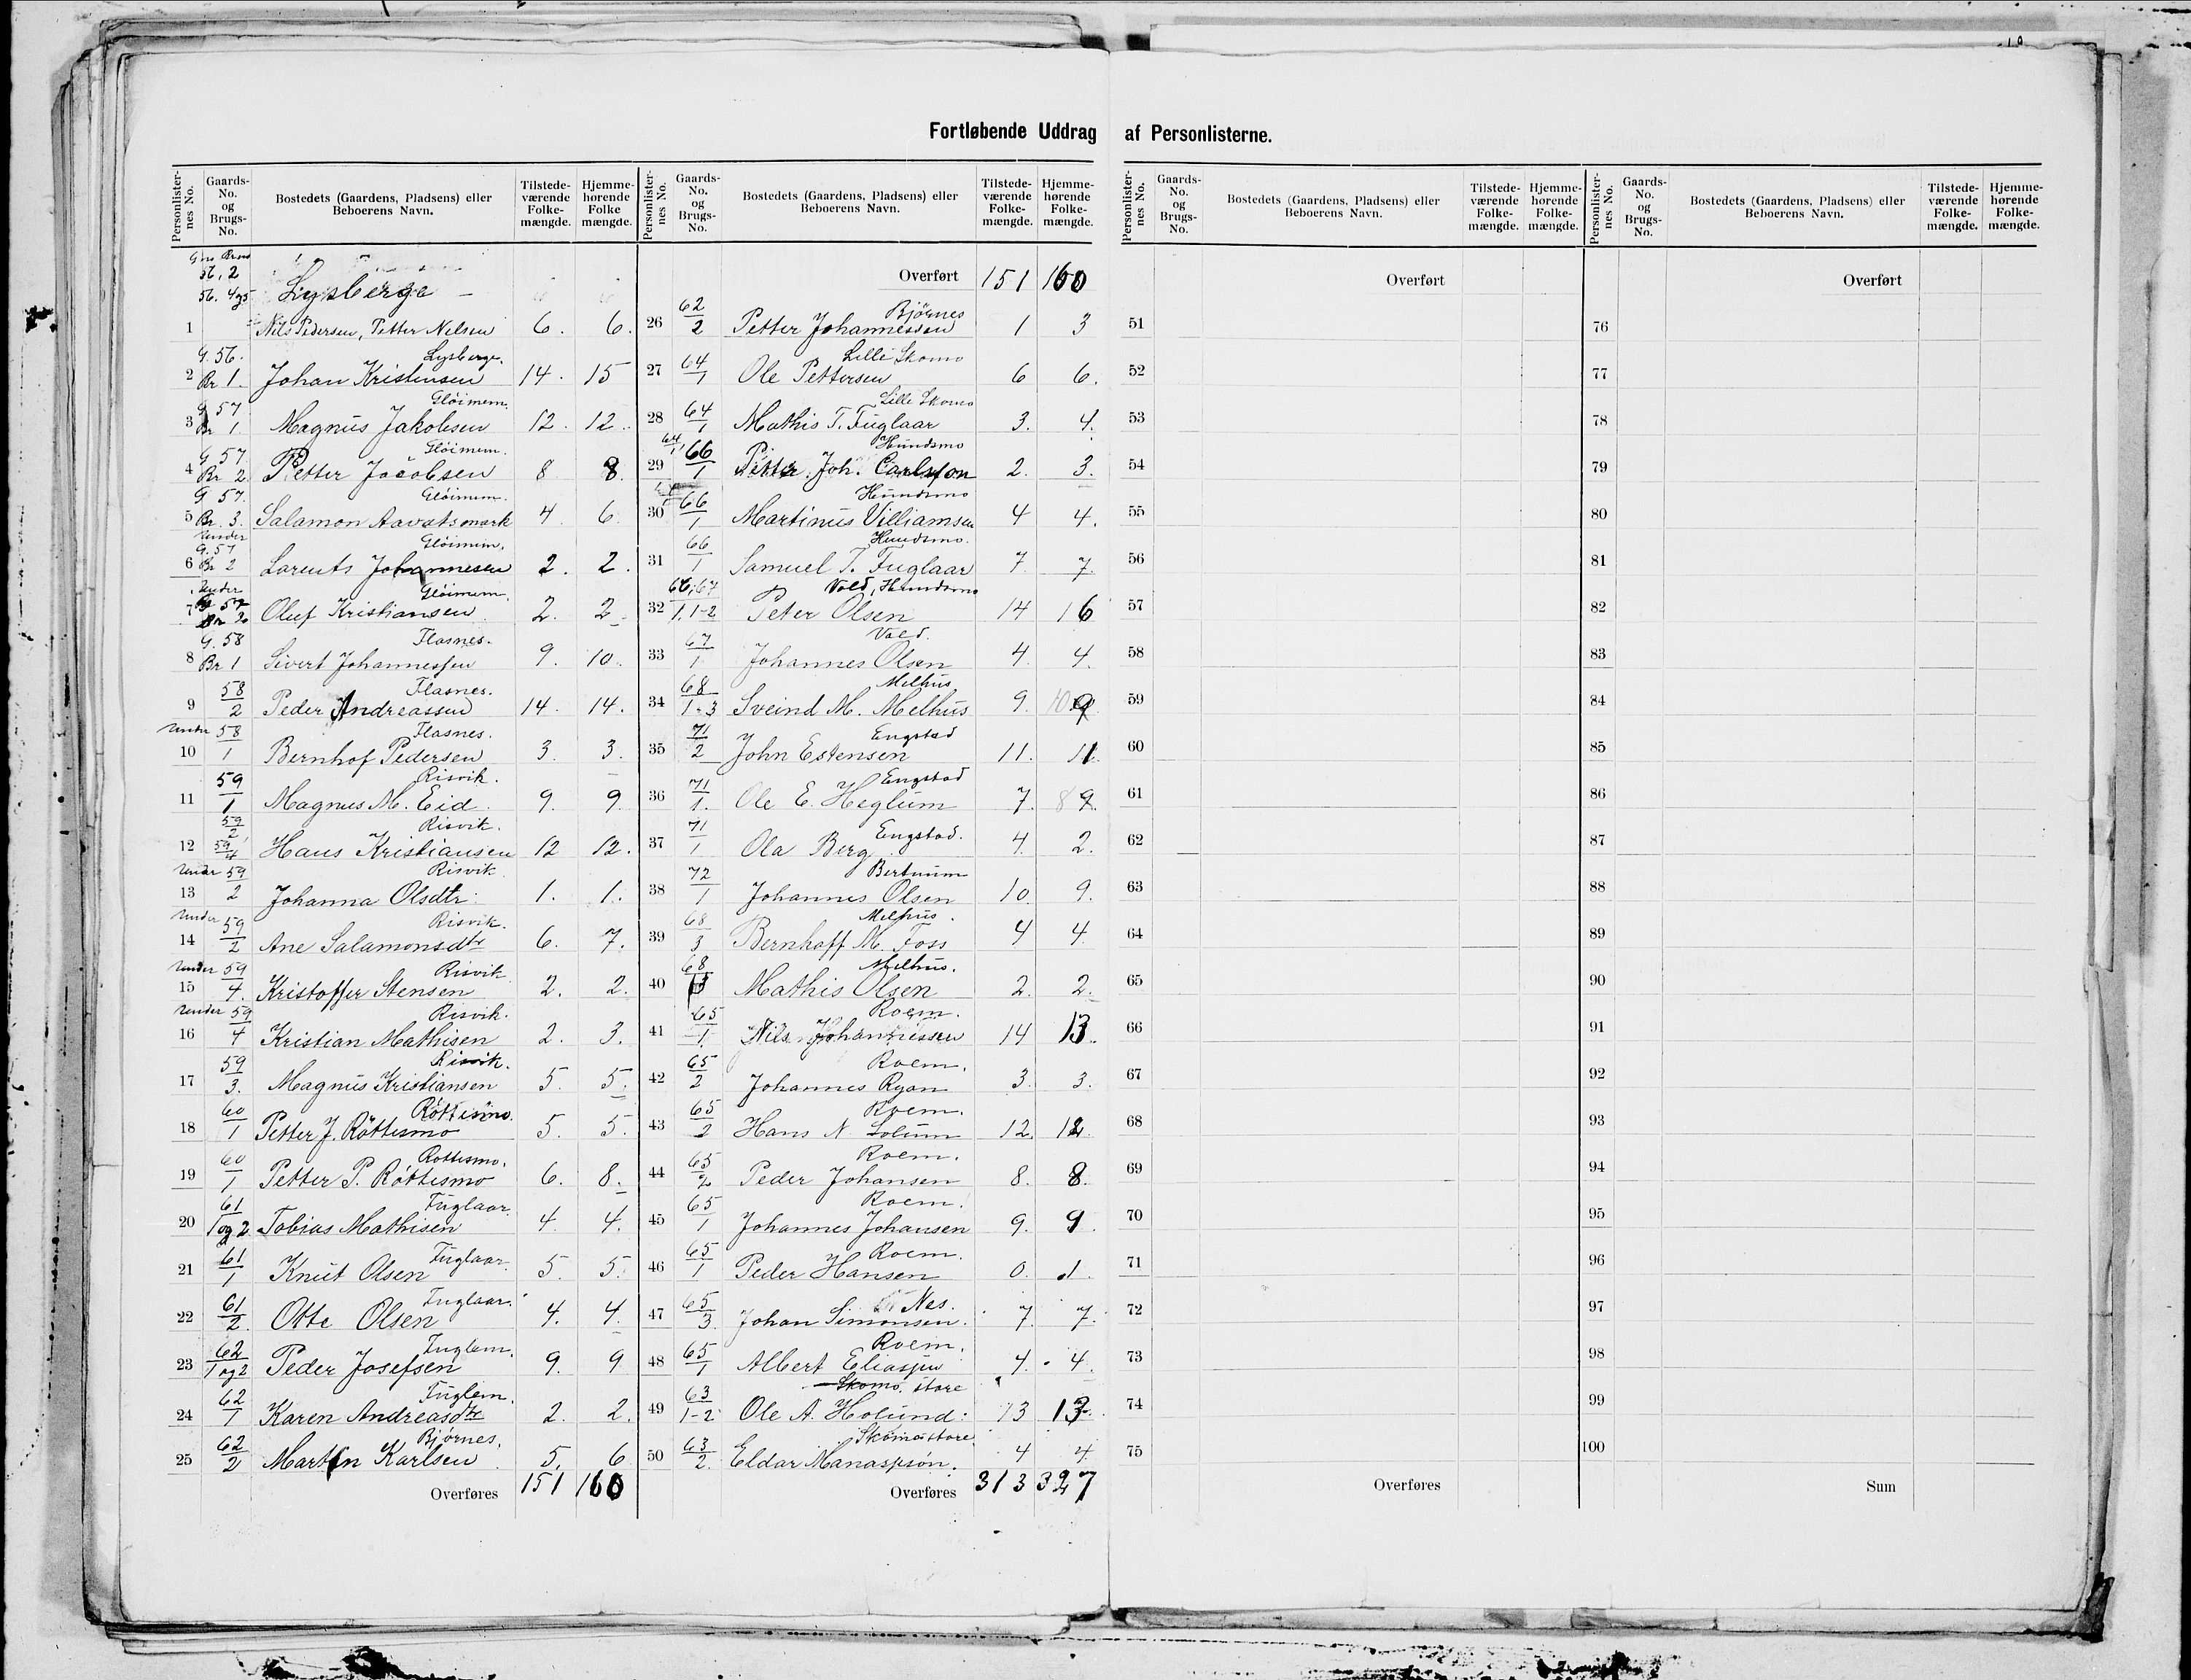 Fortløbende Uddrag af Personlisterne.
Personlister-nes No. | Gaards-No. og Brugs-No. | Bostedets (Gaardens, Pladsens) eller Beboerens Navn. | Tilstede-værende Folke-mængde. | Hjemme-hørende Folke mængde.
56, 2
56. 4 og 5 Lysberge
1 Nils Pedersen, Petter Nelsen 6. 6.
G. 56. Lysberge.
2 Br 1. Johan Kristensen 14. 15
G 57 Glöimem.
3 Br 1. Magnus Jakobsen 12. 12.
G 57 Glöimem.
4 Br 2 Petter Jacobsen 8 8.
G 57. Glöimem.
5 Br. 3. Salamon Aavatsmark 4. 6.
Under G. 57 Glöimem.
6 Br 2 Larents Johannesen 2. 2.
Under G 57 Glöimem.
7 Br 2 Oluf Kristiansen 2. 2
G. 58 Flasnes.
8 Br 1 Sivert Johannessen 9. 10.
58 Flasnes.
9 2 Peder Andreassen 14. 14.
Under 58 Flasnes.
10 1 Bernhof Pedersen 3. 3.
59 Risvik.
11 1 Magnus M. Eid 9. 9
59/2 Risvik.
12 59/4 Hans Kristiansen 12 12.
Under 59 Risvik
13 2 Johanna Olsdtr. 1. 1.
Under 59 Risvik.
14 2 Ane Salamonsdtr 6. 7.
Under 59 Risvik
15 4. Kristoffer Stensen 2. 2.
Under 59 Risvik.
16 4 Kristian Mathisen 2. 3.
59 Risvik.
17 3. Magnus Kristiansen 5. 5.
60 Röttesmo.
18 1 Petter J. Röttesmo 5. 5.
60 Rottesmo.
19 1 Petter P. Röttesmo 6. 8.
61 Fuglaar.
20 1 og 2 Tobias Mathisen 4. 4.
61 Fuglaar.
21 1 Knut Olsen 5. 5.
61 Fuglaar.
22 2 Otte Olsen 4. 4.
62 Fuglem.
23 1 og 2 Peder Josefsen 9. 9
62 Fuglem.
24 1 Karen Andreasdtr 2. 2.
62 Bjørnes.
25 2 Martin Karlsen 5. 6
Overføres 151 160
Personlister-nes No. | Gaards-No. og Brugs-No. | Bostedets (Gaardens, Pladsens) eller Beboerens Navn. | Tilstede-værende Folke-mængde. | Hjemme-hørende Folke-mængde.
Overført 151 160
62 Bjørnes
26 2 Petter Johannessen 1 3
64 Lille Skomo
27 1 Ole Pettersen 6 6.
64 Lille Skomo
28 1 Mathis T. Fuglaar 3. 4.
66 Hundsmo
29 1 Petter Joh. Carlsson 2. 3.
66 Hundsmo
30 1 Martinus Villiamsen 4 4.
66 Hundsmo.
31 1 Samuel T. Fuglaar 7 7.
66, 67 Vold, Hundsmo
32 1, 1-2 Peter Olsen 14 16
67 Vold.
33 1 Johannes Olsen 4. 4.
68 Melhus
34 1-3 Sveind M. Melhus 9. 9
71 Engstad
35 2 John Estensen 11. 11.
71 Engstad
36 1. Ole E. Heglum 7. 9.
71 Engstad.
37 1 Ola Berg 4. 2.
72 Bertnum
38 1 Johannes Olsen 10. 9.
68 Melhus.
39 3 Bernhoff M. Foss 4 4.
68 Melhus.
40 Mathis Olsen 2. 2.
65 Roem.
41 1. Nils Johannessen 14 13.
65 Roem.
42 2 Johannes Ryan 3. 3.
65 Roem.
43 2 Hans N. Solum 12. 12.
65 Roem.
44 2 Peder Johansen 8. 8.
65 Roem.
45 1 Johannes Johansen 9. 9.
65 Roem.
46 1 Peder Hansen 0. 1.
65 Nes.
47 3. Johan Simonsen. 7. 7.
65 Roem.
48 1 Albert Eliassen 4. 4.
63 Skomo store
49 1-2 Ole A. Holund: 13 13.
63 Skomo store
50 2. Eldar Manassøn. 4 4.
Overføres 313 327
Personlister-nes No. | Gaards-No. og Brugs-No. | Bostedets (Gaardens, Pladsens) eller Beboerens Navn. | Tilstede-værende Folke-mængde. | Hjemme-hørende Folke-mængde.
Overført
51
52
53
54
55
56
57
58
59
60
61
62
63
64
65
66
67
68
69
70
71
72
73
74
75
Overføres
Personlister-nes No. | Gaards-No. og Brugs-No. | Bostedets (Gaardens, Pladsens) eller Beboerens Navn. | Tilstede-værende Folke-mængde. | Hjemme-hørende Folke-mængde.
Overført
76
77
78
79
80
81
82
83
84
85
86
87
88
89
90
91
92
93
94
95
96
97
98
99
100
Sum